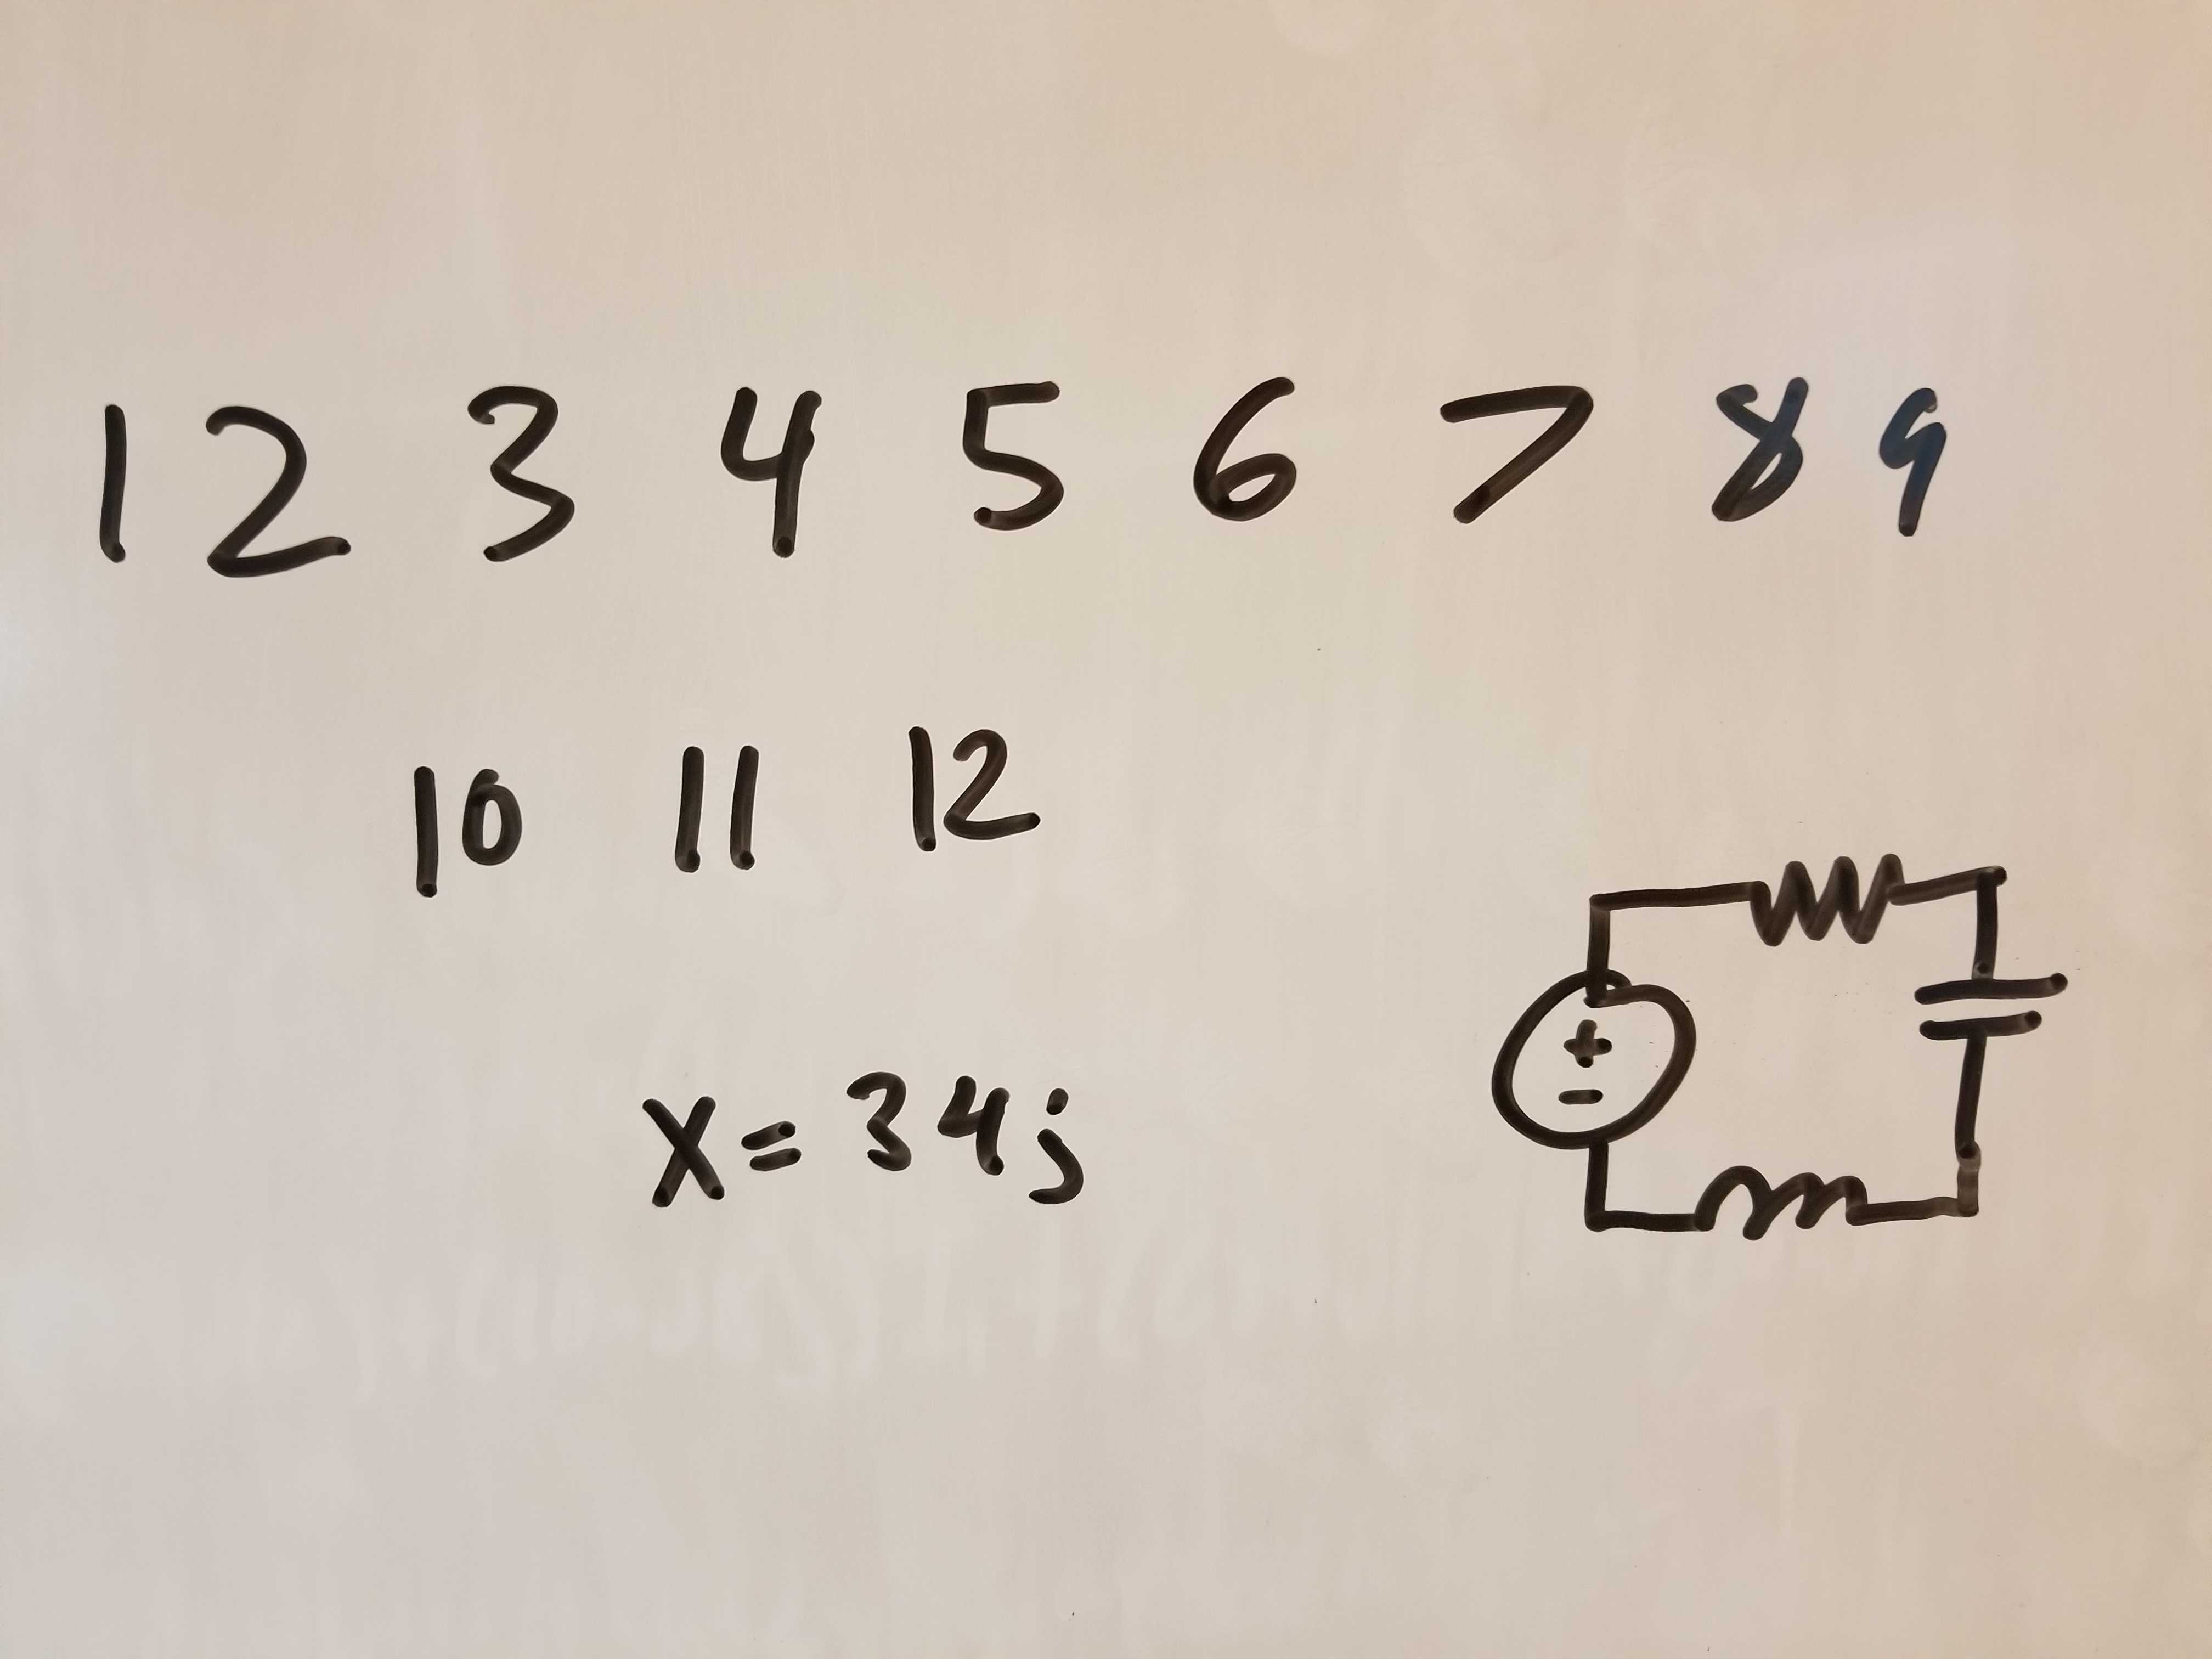 1 2 3 4 5 6 7 8 9
10 11 12
x = 34j
+
-